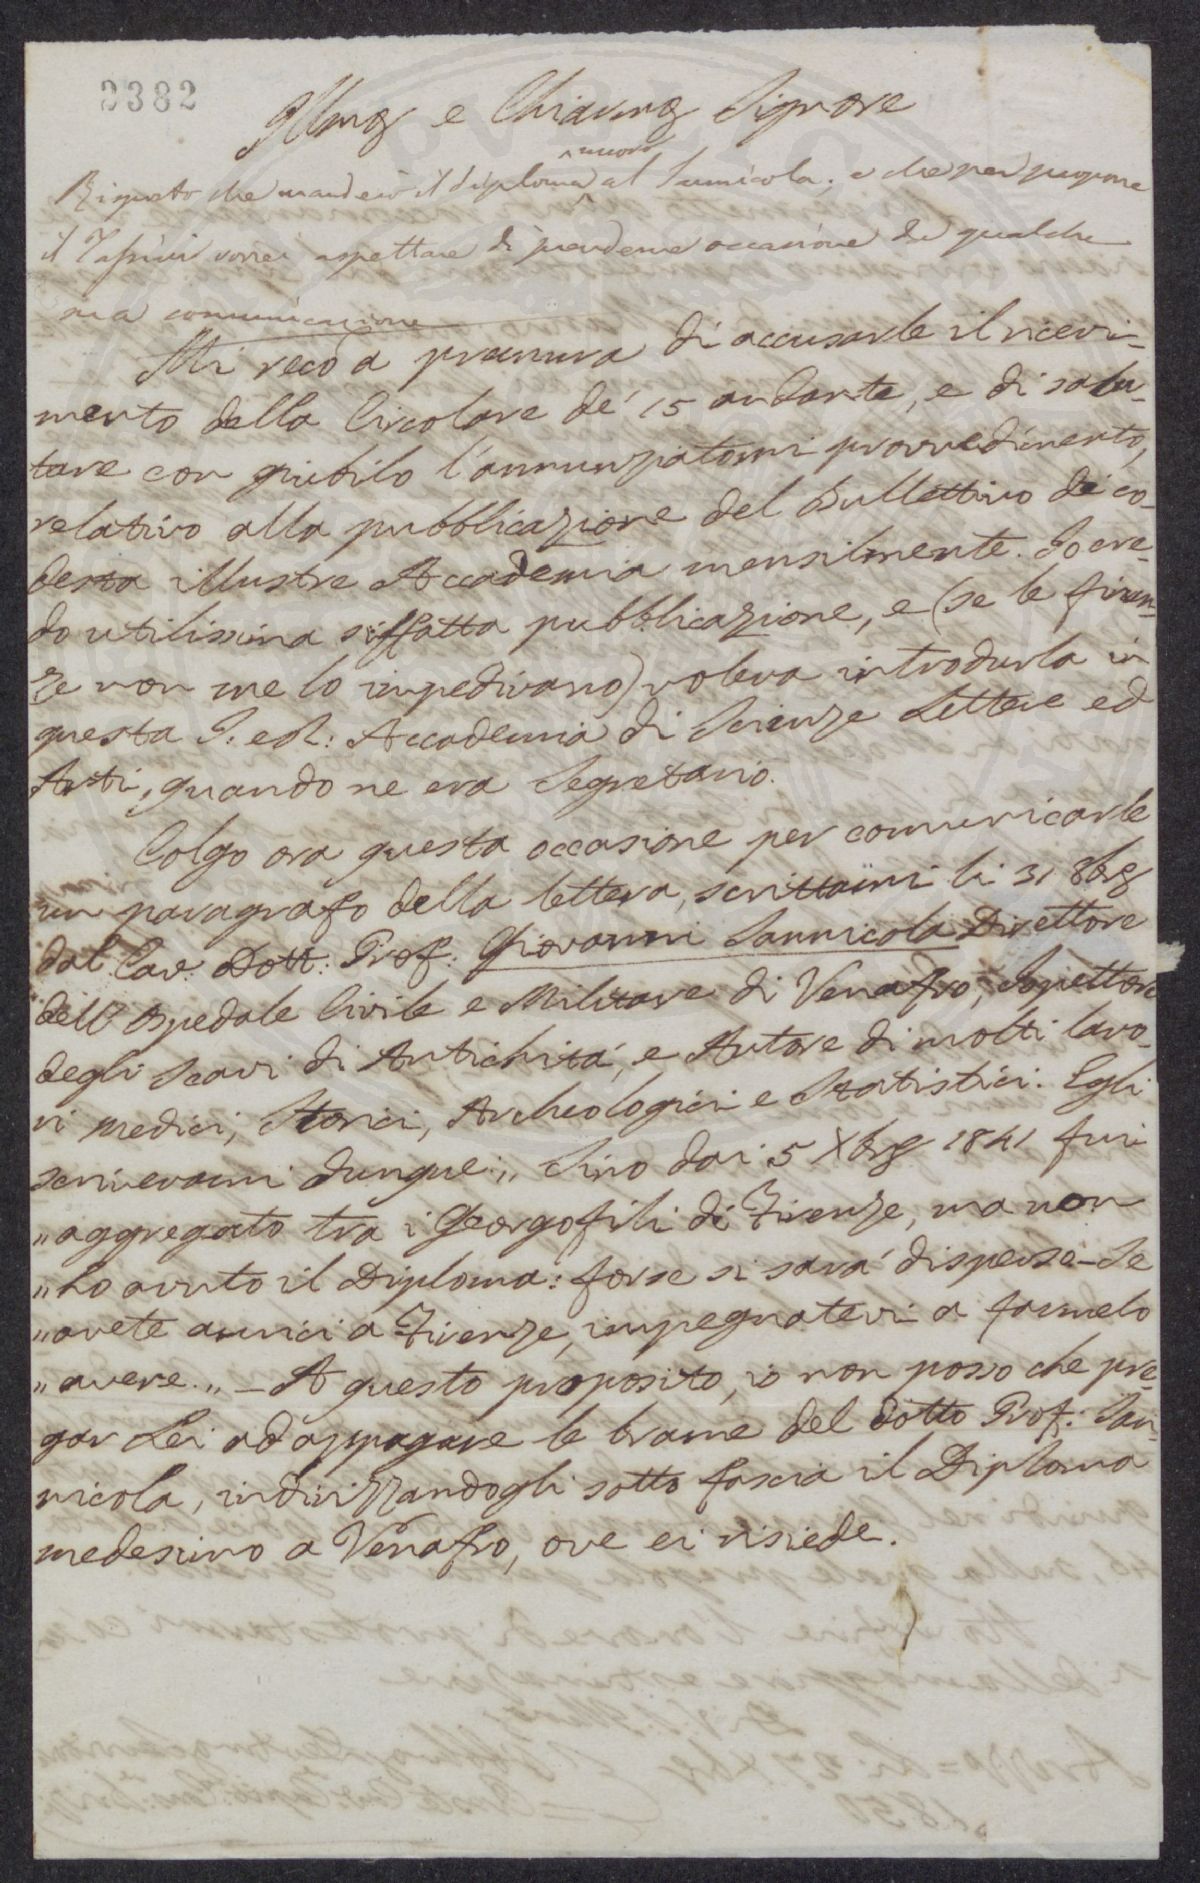 2382
Illmo e Chiarmo Signore
nuovo
Risposto che manderò il diploma al Sannicola; e che per proporre
il Tassini vorrei aspettare di prenderne occasione da qualche
sua comunicazione
Mi reco a premura di accusarle il ricevi-
mento della Circolare de' 15 andante, e di salu-
tare con giubilo l'annunziatomi provvedimento,
relativo alla pubblicazione del Bullettino di co-
desta illustre Accademia mensilmente. Io cre-
do utilissima siffatta pubblicazione, e (se le finan-
ze non me lo impedivano) voleva introdurla in
questa I. e R: Accademia di Scienze Lettere ed
Arti, quando ne era Segretario.
Colgo ora questa occasione per comunicarle
un paragrafo della lettera, scrittami li 31 8bre
dal Cav. Dott: Prof: Giovanni Sannicola Direttore
dell'Ospedale Civile e Militare di Venafro, Ispettore
degli Scavi di Antichità, e Autore di molti lavo-
ri medici, Storici, Archeologici e Statistici. Egli
scrivevami dunque: „ Sino dai 5 Xbre 1841 fui
„ aggregato tra i Georgofili di Firenze, ma non
„ ho avuto il Diploma: forse si sarà disperso - Se
„ avete amici a Firenze, impegnatevi a farmelo
„ avere. „ - A questo proposito, io non posso che pre-
gar Lei ad appagare le brame del dotto Prof: San-
nicola, indirizzandogli sotto fascia il Diploma
medesimo a Venafro, ove ei risiede.